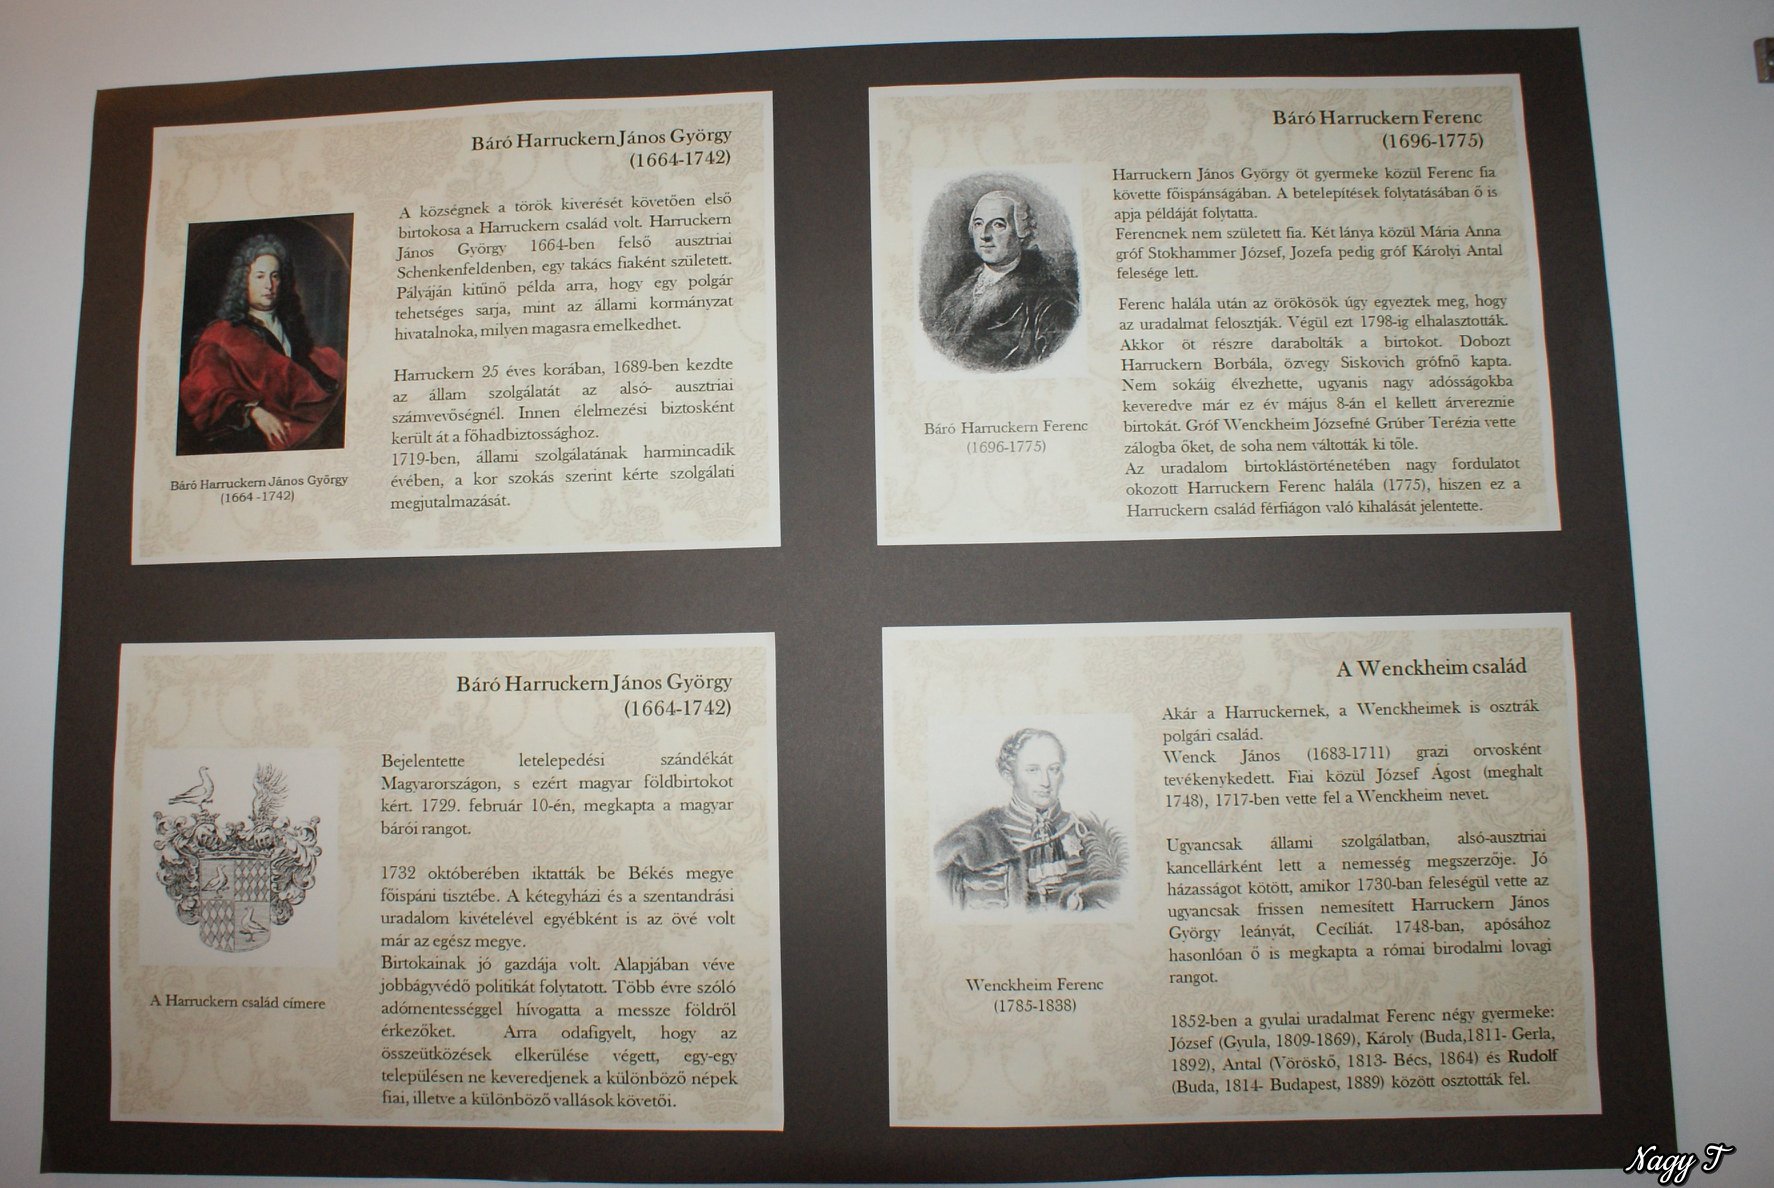 Báró Harruckern János György
(1664-1742)
A községnek a török kiverését követően első
birtokosa a Harruckern család volt. Harruckern
János György 1664-ben felső ausztriai
Schenkenfeldenben, egy takács fiaként született.
Pályáján kitűnő példa arra, hogy egy polgár
tehetséges sarja, mint az állami kormányzat
hivatalnoka, milyen magasra emelkedhet.
Harruckern 25 éves korában, 1689-ben kezdte
az állam szolgálatát az alsó- ausztriai
számvevőségnél. Innen élelmezési biztosként
került át a főhadbiztossághoz.
1719-ben, állami szolgálatának harmincadik
évében, a kor szokás szerint kérte szolgálati
megjutalmazását.
Báró Harruckern János György
(1664 -1742)
Báró Harruckern Ferenc
(1696-1775)
Harruckern János György öt gyermeke közül Ferenc fia
követte főispánságában. A betelepítések folytatásában ő is
apja példáját folytatta.
Ferencnek nem született fia. Két lánya közül Mária Anna
gróf Stokhammer József, Jozefa pedig gróf Károlyi Antal
felesége lett.
Ferenc halála után az örökösök úgy egyeztek meg, hogy
az uradalmat felosztják. Végül ezt 1798-ig elhalasztották.
Akkor öt részre darabolták a birtokot. Dobozt
Harruckern Borbála, özvegy Siskovich grófnő kapta.
Nem sokáig élvezhette, ugyanis nagy adósságokba
keveredve már ez év május 8-án el kellett árvereznie
birtokát. Gróf Wenckheim Józsefné Grúber Terézia vette
zálogba őket, de soha nem váltották ki tőle.
Az uradalom birtoklástörténetében nagy fordulatot
okozott Harruckern Ferenc halála (1775), hiszen ez a
Harruckern család férfiágon való kihalását jelentette.
Báró Harruckern Ferenc
(1696-1775)
Báró Harruckern János György
(1664-1742)
Bejelentette letelepedési szándékát
Magyarországon, s ezért magyar földbirtokot
kért. 1729. február 10-én, megkapta a magyar
bárói rangot.
1732 októberében iktatták be Békés megye
főispáni tisztébe. A kétegyházi és a szentandrási
uradalom kivételével egyébként is az övé volt
már az egész megye.
Birtokainak jó gazdája volt. Alapjában véve
jobbágyvédő politikát folytatott. Több évre szóló
adómentességgel hívogatta a messze földről
érkezőket. Arra odafigyelt, hogy az
összeütközések elkerülése végett, egy-egy
településen ne keveredjenek a különböző népek
fiai, illetve a különböző vallások követői.
A Harruckern család címere
A Wenckheim család
Akár a Harruckernek, a Wenckheimek is osztrák
polgári család.
Wenck János (1683-1711) grazi orvosként
tevékenykedett. Fiai közül József Ágost (meghalt
1748), 1717-ben vette fel a Wenckheim nevet.
Ugyancsak állami szolgálatban, alsó-ausztriai
kancellárként lett a nemesség megszerzője. Jó
házasságot kötött, amikor 1730-ban feleségül vette az
ugyancsak frissen nemesített Harruckern János
György leányát, Cecíliát. 1748-ban, apósához
hasonlóan ő is megkapta a római birodalmi lovagi
rangot.
1852-ben a gyulai uradalmat Ferenc négy gyermeke:
József (Gyula, 1809-1869), Károly (Buda,1811- Gerla,
1892), Antal (Vöröskő, 1813- Bécs, 1864) és Rudolf
(Buda, 1814- Budapest, 1889) között osztották fel.
Wenckheim Ferenc
(1785-1838)
Nagy T